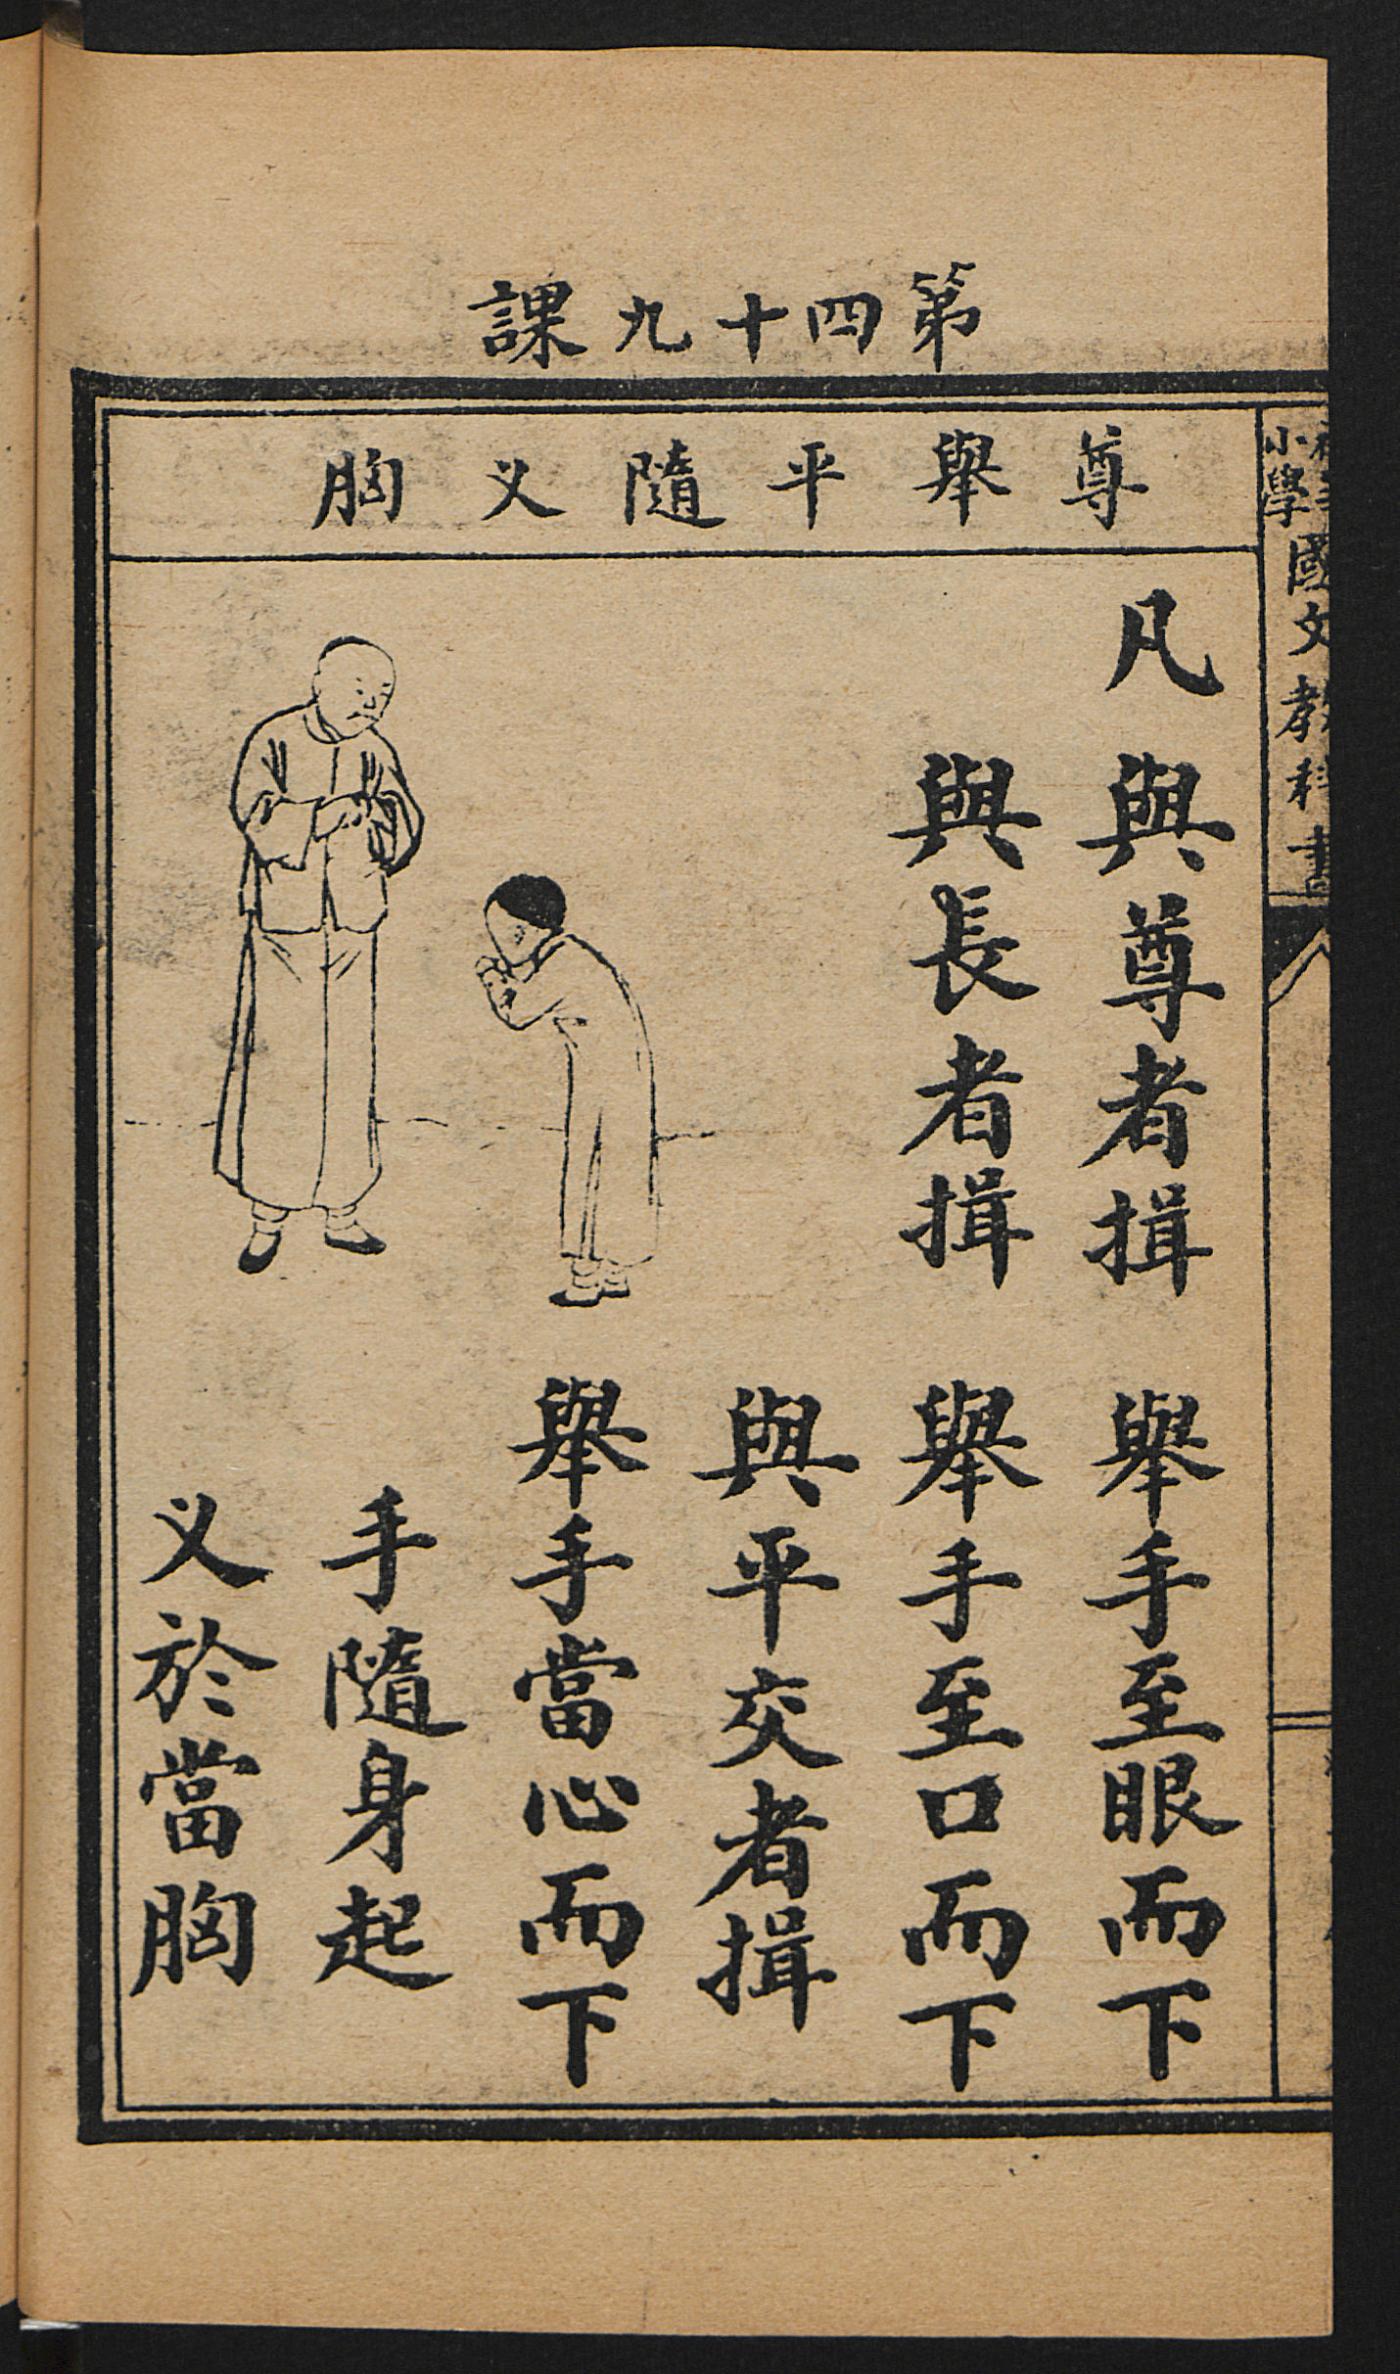 第四十九課
尊舉平隨义胸
凡與尊者揖 舉手至眼而下
與長者揖 舉手至口而下
與平交者揖
舉手當心而下
手隨身起
义於當胸
小學
國文教科書